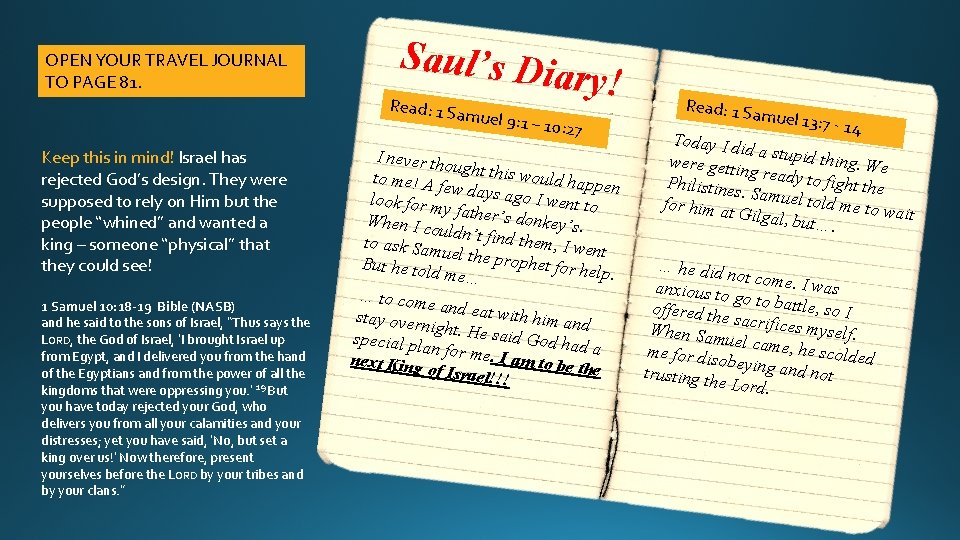 OPEN YOUR TRAVEL JOURNAL
TO PAGE 81.
Keep this in mind! Israel has
rejected God’s design. They were
supposed to rely on Him but the
people “whined” and wanted a
king – someone “physical” that
they could see!
1 Samuel 10:18-19 Bible (NASB)
and he said to the sons of Israel, “Thus says the
LORD, the God of Israel, ‘I brought Israel up
from Egypt, and I delivered you from the hand
of the Egyptians and from the power of all the
kingdoms that were oppressing you.’ 19 But
you have today rejected your God, who
delivers you from all your calamities and your
distresses; yet you have said, ‘No, but set a
king over us!’ Now therefore, present
yourselves before the LORD by your tribes and
by your clans.”
Saul’s Diary!
Read: 1 Samuel 9:1 – 10:27
I never thought this would happen
to me! A few days ago I went to
look for my father’s donkey’s.
When I couldn’t find them, I went
to ask Samuel the prophet for help.
But he told me…
… to come and eat with him and
stay overnight. He said God had a
special plan for me. I am to be the
next King of Israel!!!
Read: 1 Samuel 13:7 - 14
Today I did a stupid thing. We
were getting ready to fight the
Philistines. Samuel told me to wait
for him at Gilgal, but….
… he did not come. I was
anxious to go to battle, so I
offered the sacrifices myself.
When Samuel came, he scolded
me for disobeying and not
trusting the Lord.